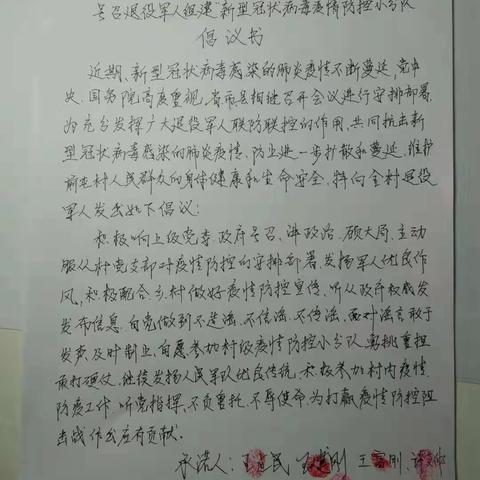 号召退役军人组建"新型冠状病毒疫情防控小分队
倡议书
近期、新型冠状病毒感染的肺炎疫情不断蔓延,党中
央、国务院高度重视,省市县相继召开会议进行安排部署,
为充分发挥广大退役军人联防联控的作用,共同抗击新
型冠状病毒感染的肺炎疫情,防止进一步扩散和蔓延,维护
前屯村人民群众的身体健康和生命安全,特向全村退役
军人发出如下倡议:
积极响应上级党委、政府号召、讲政治、顾大局、主动
服从村党支部对疫情防控的安排部署、发扬军人优良作
风,积极配合乡、村做好疫情防控宣传、听从政府权威发
发布信息,自觉做到不造谣、不信谣、不传谣、面对谣言敢于
发声、及时制止,自愿参加村级疫情防控小分队,勇挑重担
敢打硬仗,继续发扬人民军队优良传统,积极参加村内疫情
防疫工作,听党指挥、不负重托、不辱使命,为打赢疫情防控阻
击战作出应有贡献.
承诺人: